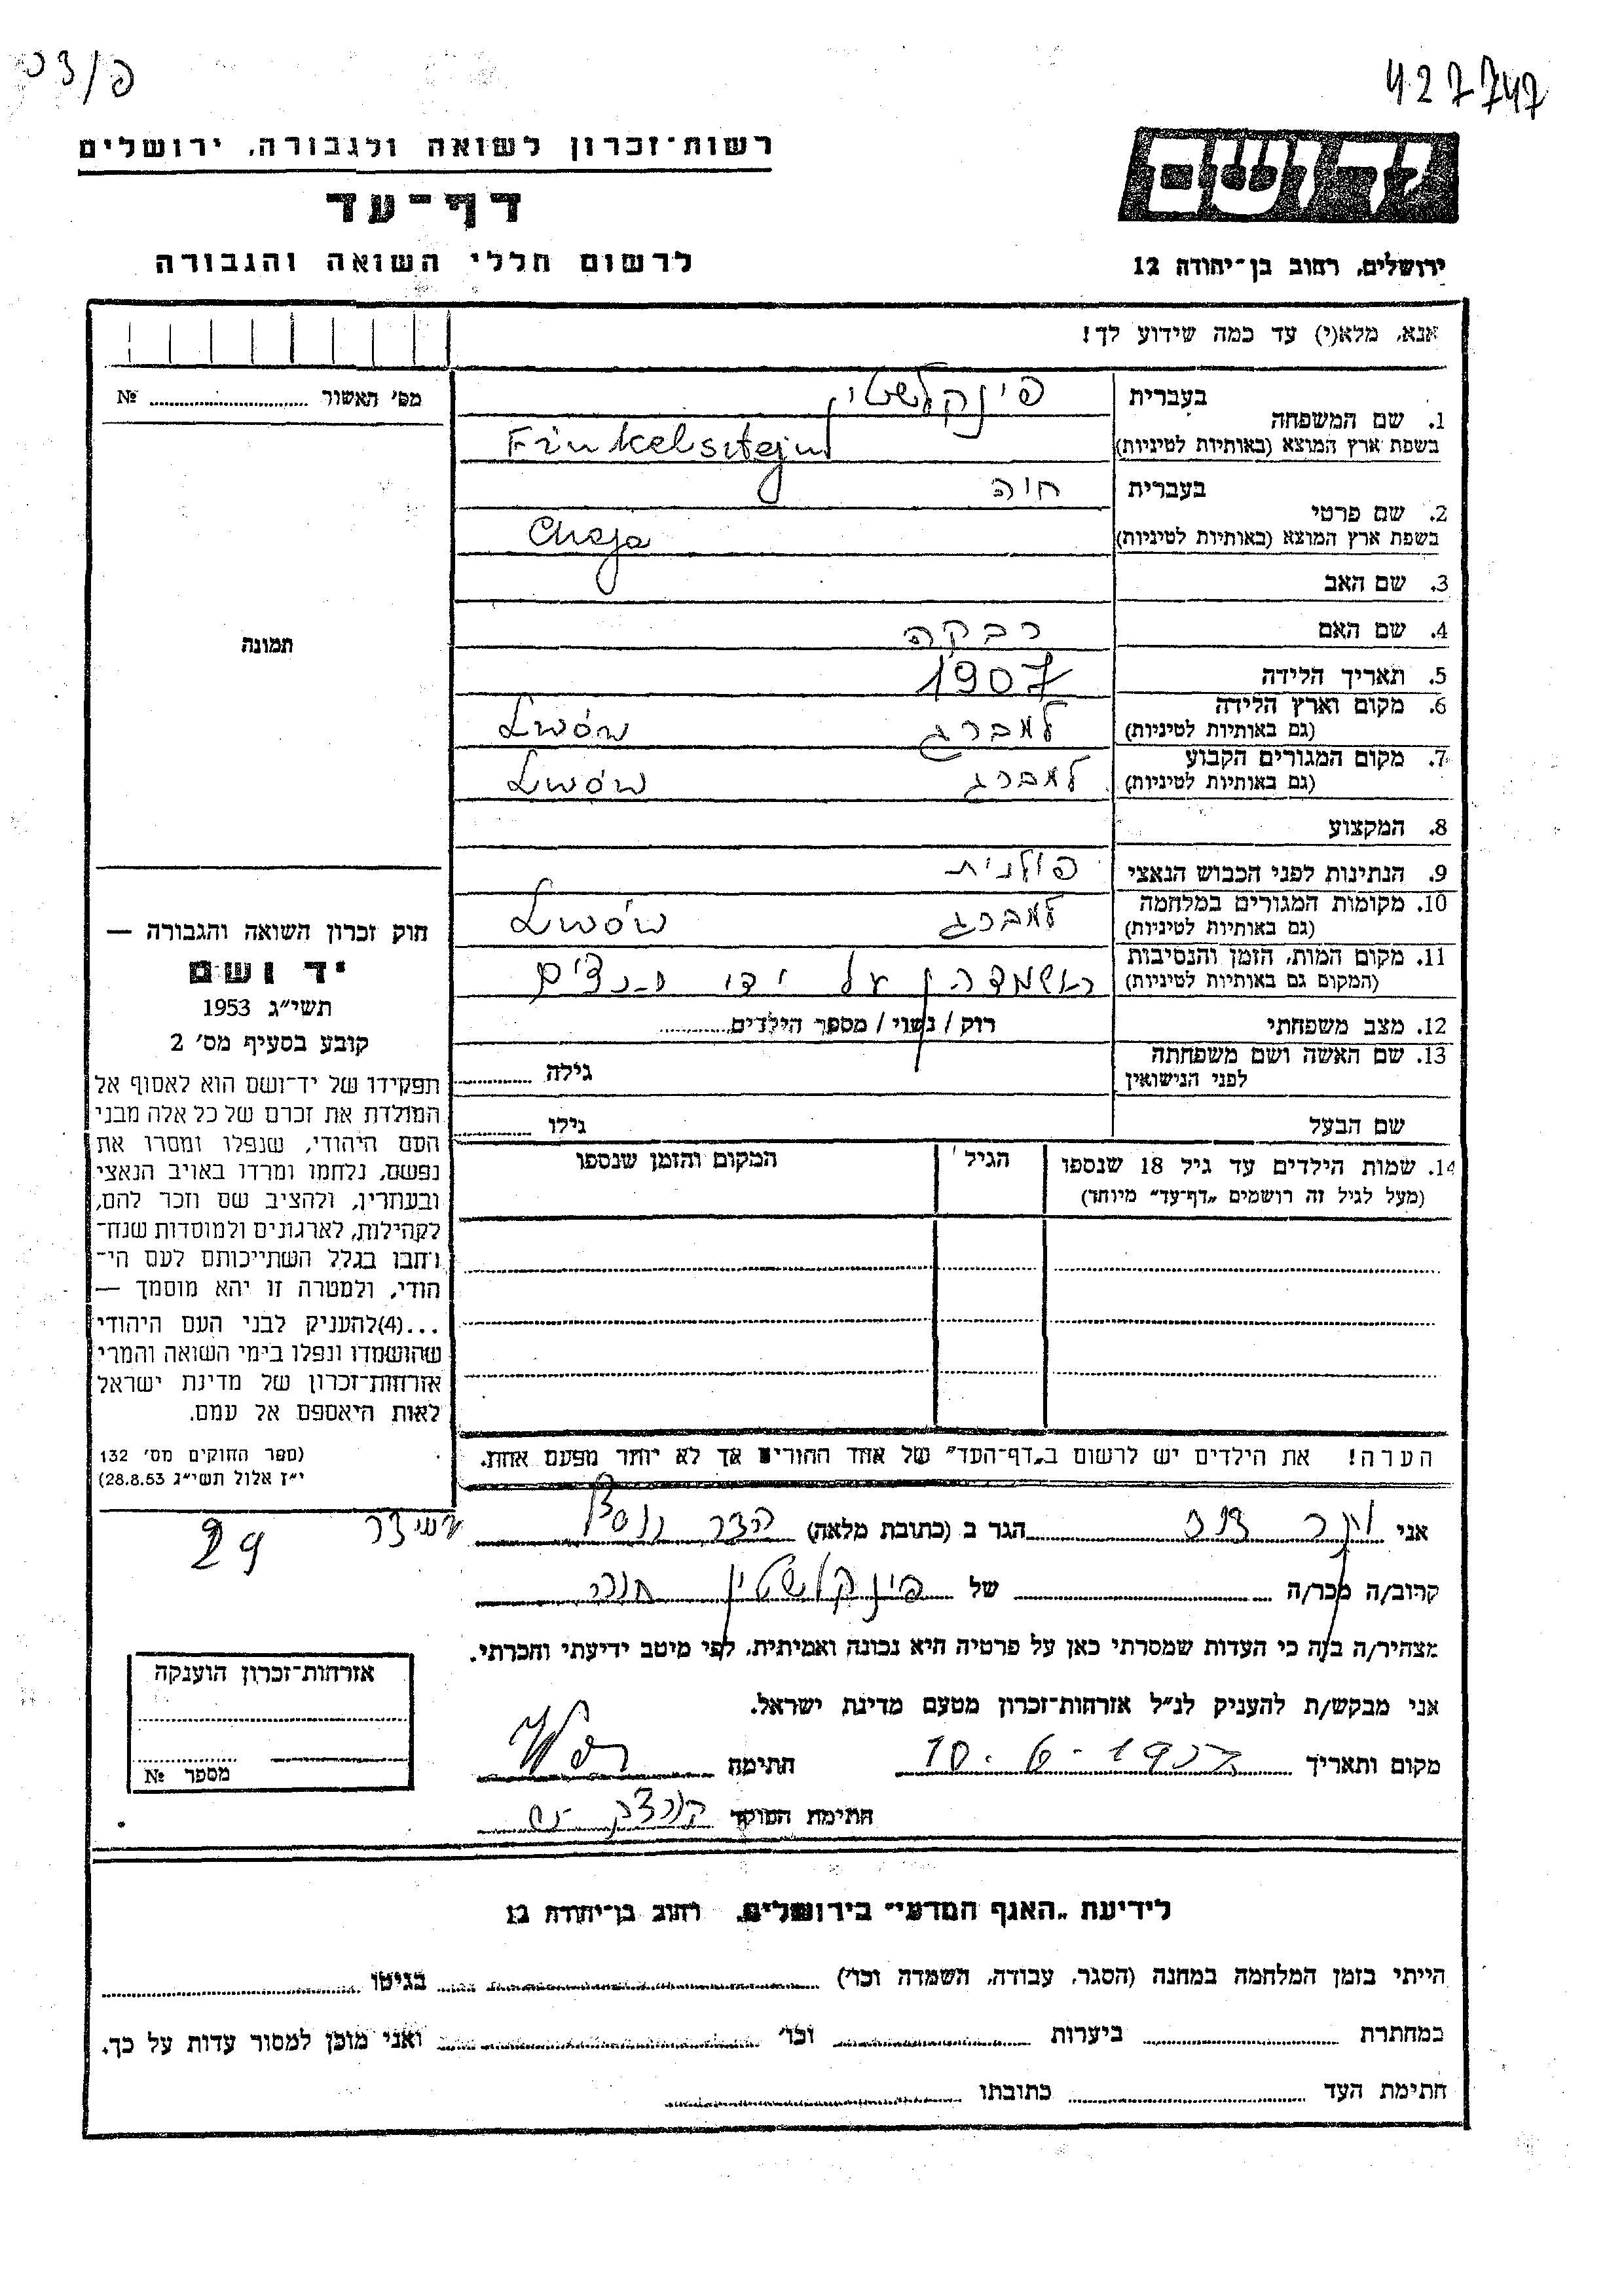 427747
פ/53
יד ושם
ירושלים, רחוב בן־יהודה 12
רשות־זכרון לשואה ולגבורה, ירושלים
דף־עד
לרשום חללי השואה והגבורה
אנא, מלא(י) עד כמה שידוע לך!
מס׳ האשור № ........
תמונה
1. שם המשפחה
בעברית פינקלשטין
בשפת ארץ המוצא (באותיות לטיניות) Finkelsztejn
2. שם פרטי
בעברית חיה
בשפת ארץ המוצא (באותיות לטיניות) Chaja
3. שם האב
4. שם האם רבקה
5. תאריך הלידה 1907
6. מקום וארץ הלידה למברג Lwów
(גם באותיות לטיניות)
7. מקום המגורים הקבוע למברג Lwów
(גם באותיות לטיניות)
8. המקצוע
9. הנתינות לפני הכבוש הנאצי פולנית
10. מקומות המגורים במלחמה למברג Lwów
(גם באותיות לטיניות)
11. מקום המות, הזמן והנסיבות על ידי
(המקום גם באותיות לטיניות)
12. מצב משפחתי רוק / נשוי / מספר הילדים........
13. שם האשה ושם משפחתה גילה ........
לפני הנישואין
שם הבעל גילו ........
14. שמות הילדים עד גיל 18 שנספו הגיל המקום והזמן שנספו
(מעל לגיל זה רושמים „דף־עד״ מיוחד)
הערה! את הילדים יש לרשום ב„דף־העד״ של אחד ההורים אך לא יותר מפעם אחת.
חוק זכרון השואה והגבורה —
יד ושם
תשי״ג 1953
קובע בסעיף מס׳ 2
תפקידו של יד־ושם הוא לאסוף אל
המולדת את זכרם של כל אלה מבני
העם היהודי, שנפלו ומסרו את
נפשם, נלחמו ומרדו באויב הנאצי
ובעוזריו, ולהציב שם וזכר להם,
לקהילות, לארגונים ולמוסדות שנח־
רבו בגלל השתייכותם לעם הי־
הודי, ולמטרה זו יהא מוסמך —
...(4)להעניק לבני העם היהודי
שהושמדו ונפלו בימי השואה והמרי
אזרחות־זכרון של מדינת ישראל
לאות היאספם אל עמם.
(ספר החוקים מס׳ 132
י״ז אלול תשי״ג 28.8.53)
29
אני הגר ב (כתובת מלאה)
קרוב/ה מכר/ה ........ של פינקלשטין
מצהיר/ה בזה כי העדות שמסרתי כאן על פרטיה היא נכונה ואמיתית, לפי מיטב ידיעתי והכרתי.
אני מבקש/ת להעניק לנ״ל אזרחות־זכרון מטעם מדינת ישראל.
מקום ותאריך 10.6.1957 חתימה
חתימת הפוקד
אזרחות־זכרון הוענקה
מספר №
לידיעת „האגף המדעי״ בירושלים, רחוב בן־יהודה 12
הייתי בזמן המלחמה במחנה (הסגר, עבודה, השמדה וכו׳) ........ בגיטו ........
במחתרת ........ ביערות ........ וכו׳ ........ ואני מוכן למסור עדות על כך.
חתימת העד ........ כתובתו ........